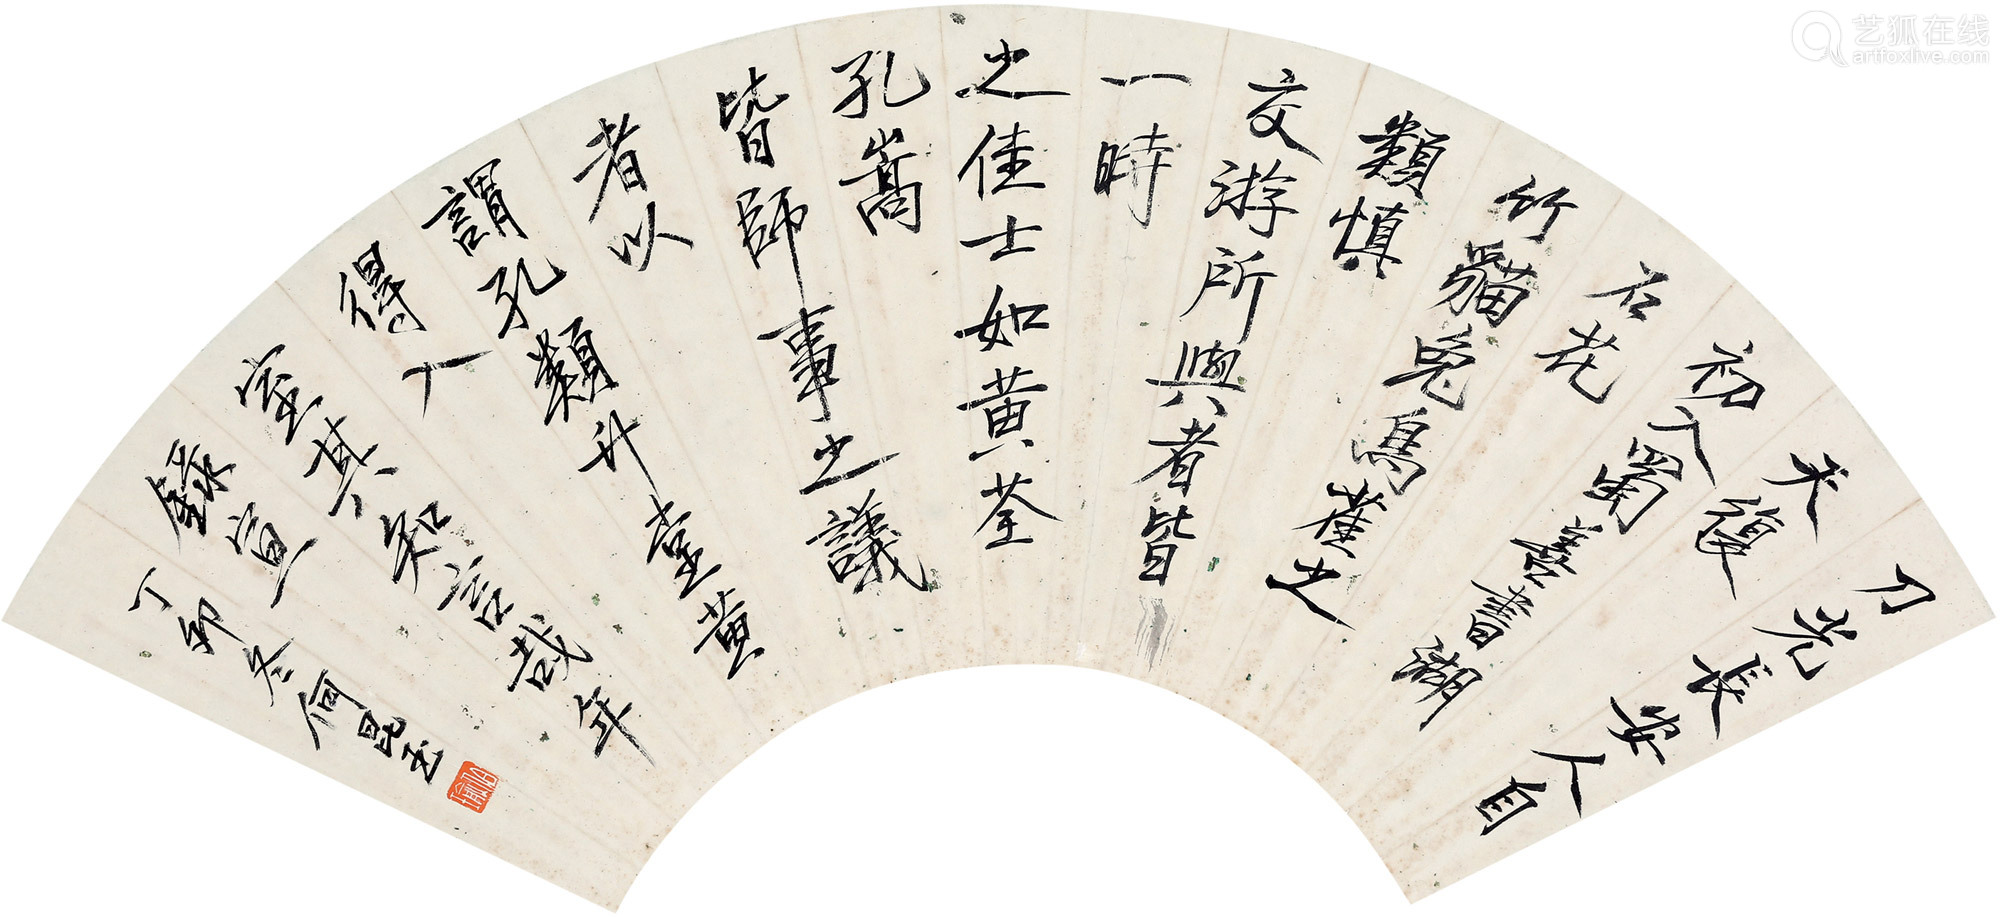 刀光長安人自
天復
初入蜀善書湖
石花
竹貓兔鳥雀之
類慎
交游所與者皆
一時
之佳士如黃荃
孔嵩
皆師事之議
者以
謂孔類升堂黃
得入
室其知言哉年
錄宣
丁卯冬何昆玉
艺狐在线
artfoxlive.com